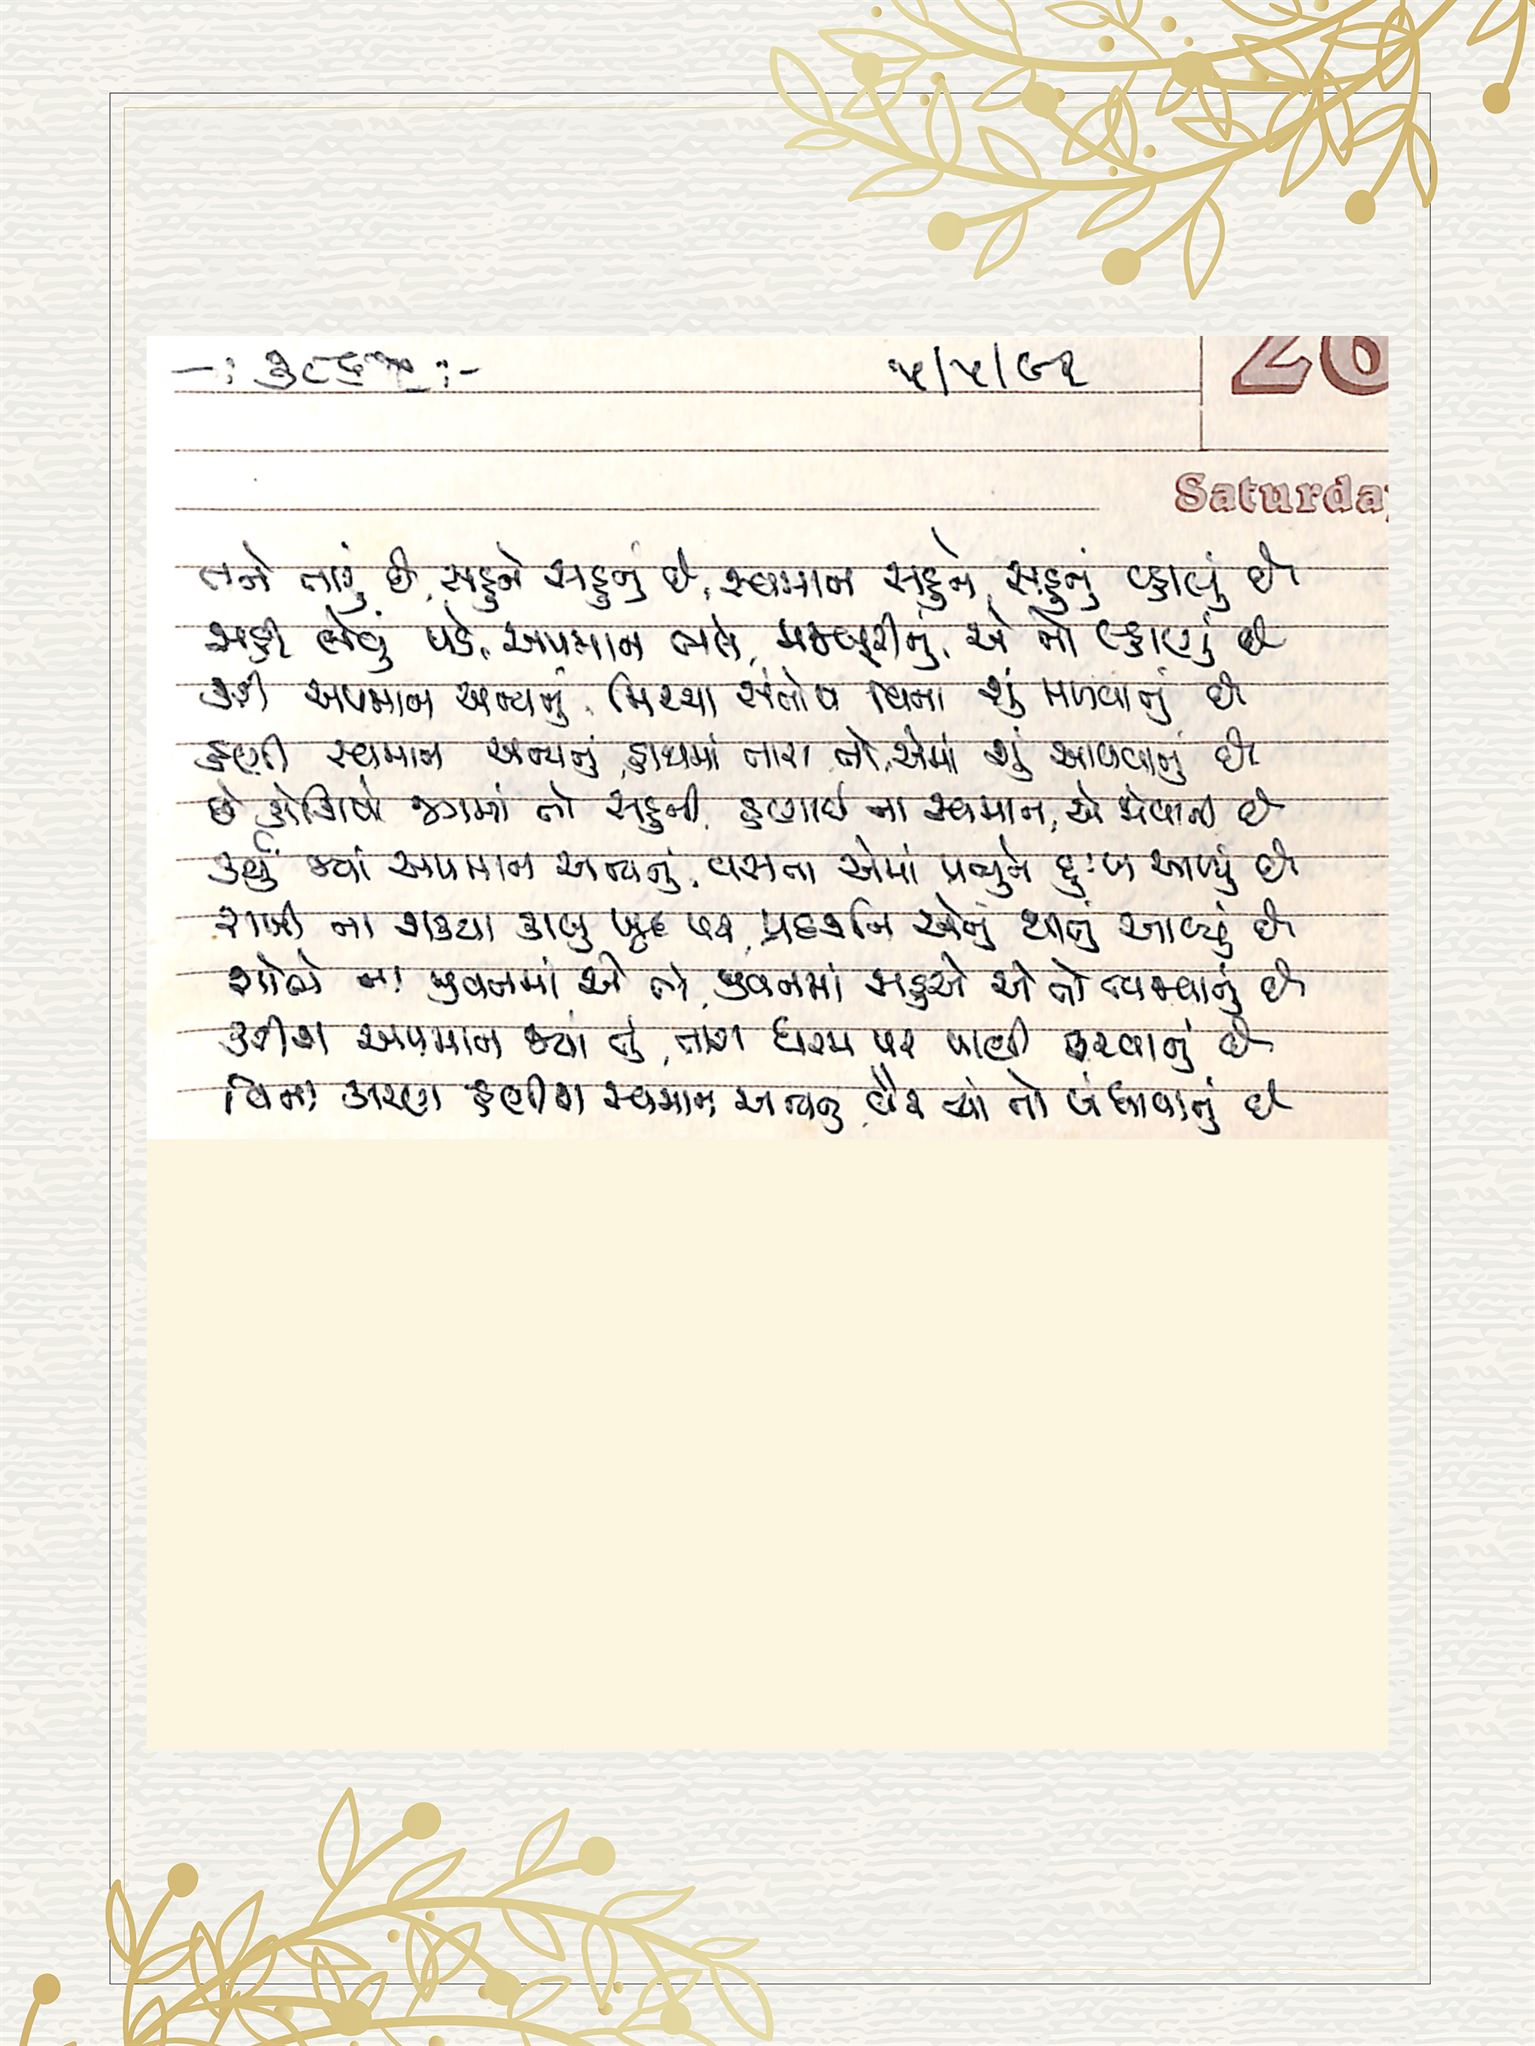 ૫/૫/૯૨
26
Saturda
તને તારું છે, સહુને સહુનું છે, સ્વમાન સહુને, સહુનું વ્હાલું છે
સહી લેવું પડે, અપમાન ભલે, મજબૂરીનું, એ તો લ્હાણું છે
કરી અપમાન અન્યનું, મિથ્યા સંતોષ વિના શું મળવાનું છે
હણી સ્વમાન અન્યનું, હાથમાં તારા તો, એમાં શું આવવાનું છે
છે કોશિષો જગમાં તો સહુની, હણાઈ ના સ્વમાન, એ જોવાની છે
કર્યું જ્યાં અપમાન અન્યનું, વસતા એમાં પ્રભુને દુઃખ આપ્યું છે
રાખી ના શક્યા કાબુ ખુદ પર, પ્રદર્શન એનું થાતું આવ્યું છે
શોભે ના જીવનમાં એ તો, જીવનમાં સહુએ એ તો ત્યજવાનું છે
કરીશ અપમાન જ્યાં તું, તારા ધરમ પર પાણી ફરવાનું છે
વિના કારણ હણીશ સ્વમાન અન્યનું, વૈર ત્યાં તો બંધાવાનું છે